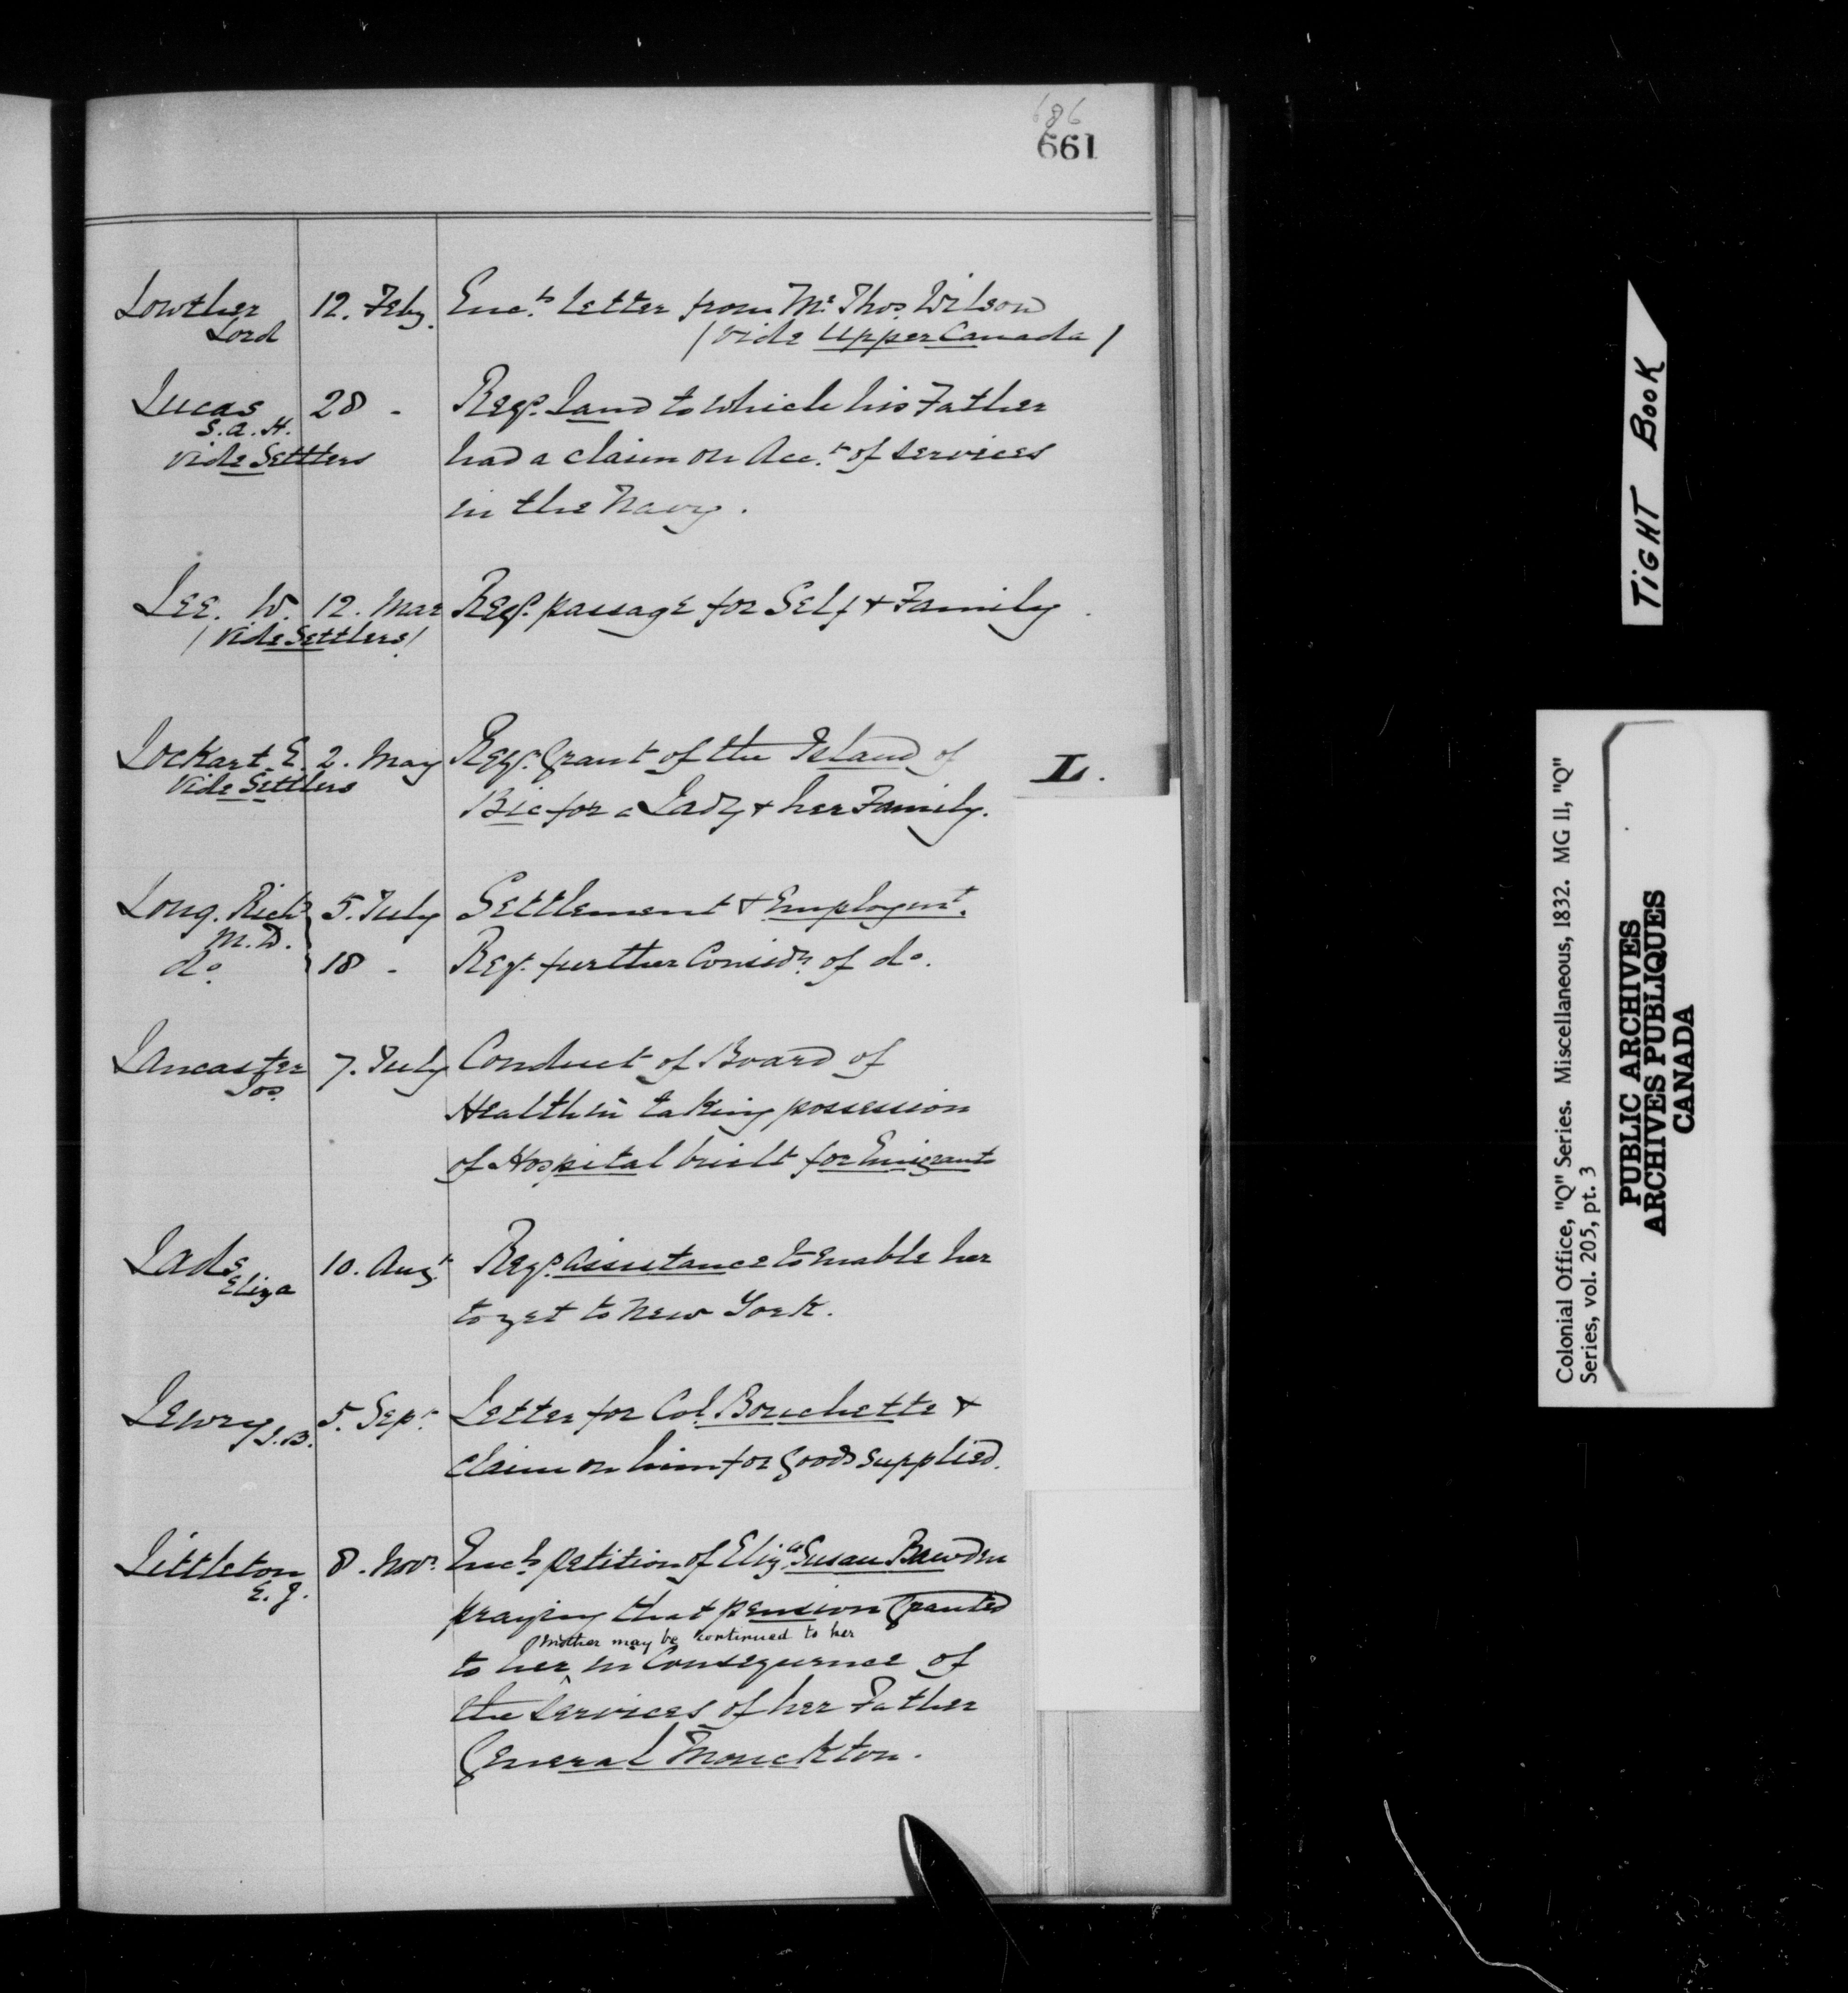 686
661
Lowther 12. Feby. Encg. Letter from Mr. Thos. Wilson
Lord / vide Upper Canada /
Lucas 28 - Reqg. Land to which his Father
S. A. H.
vide Settlers had a claim on Acct. of services
in the Navy.
Lee. W. 12. Mar Reqg. passage for Self & Family.
/ Vide Settlers /
Lockart. E. 2. May Reqg. Grant of the Island of
Vide Settlers
Bic for a Lady & her Family.
L.
Long. Richd. 5. July Settlement & Employmt.
M.D.
do. 18 - Reqg. further Considn. of do.
Lancaster 7. July Conduct of Board of
Jos.
Health in taking possession
of Hospital built for Emigrants
Lade 10. Augt. Reqg. assistance to enable her
Eliza
to get to New York.
Lewry 5. Sepr. Letter for Col. Bouchette &
J.B.
claim on him for Goods supplied.
Littleton 8. Novr. Encg. petition of Eliza Susan Bawden
E. J.
praying that pension Granted
mother may be continued to her
to her ^ in Consequence of
the services of her Father
General Monckton.
TIGHT BOOK
Colonial Office, "Q" Series. Miscellaneous, 1832. MG 11, "Q"
Series, vol. 205, pt. 3
PUBLIC ARCHIVES
ARCHIVES PUBLIQUES
CANADA